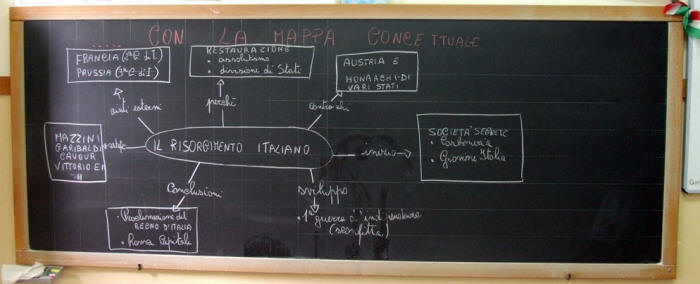 ..... CON LA MAPPA CONCETTUALE
FRANCIA (2ª G. di I.)
PRUSSIA (3ª G. di I.)
RESTAURAZIONE
• assolutismo
• divisione di Stati
AUSTRIA E
MONARCHI DI
VARI STATI
aiuti esterni
perché
contro chi
MAZZINI
GARIBALDI
CAVOUR
VITTORIO EM
II
IL RISORGIMENTO ITALIANO
inizio
SOCIETÀ SEGRETE
• Carboneria
• Giovine Italia
Conclusioni
sviluppo
• Proclamazione del
REGNO D'ITALIA
• Roma Capitale
• 1ª guerra d'ind
(sconfitta)